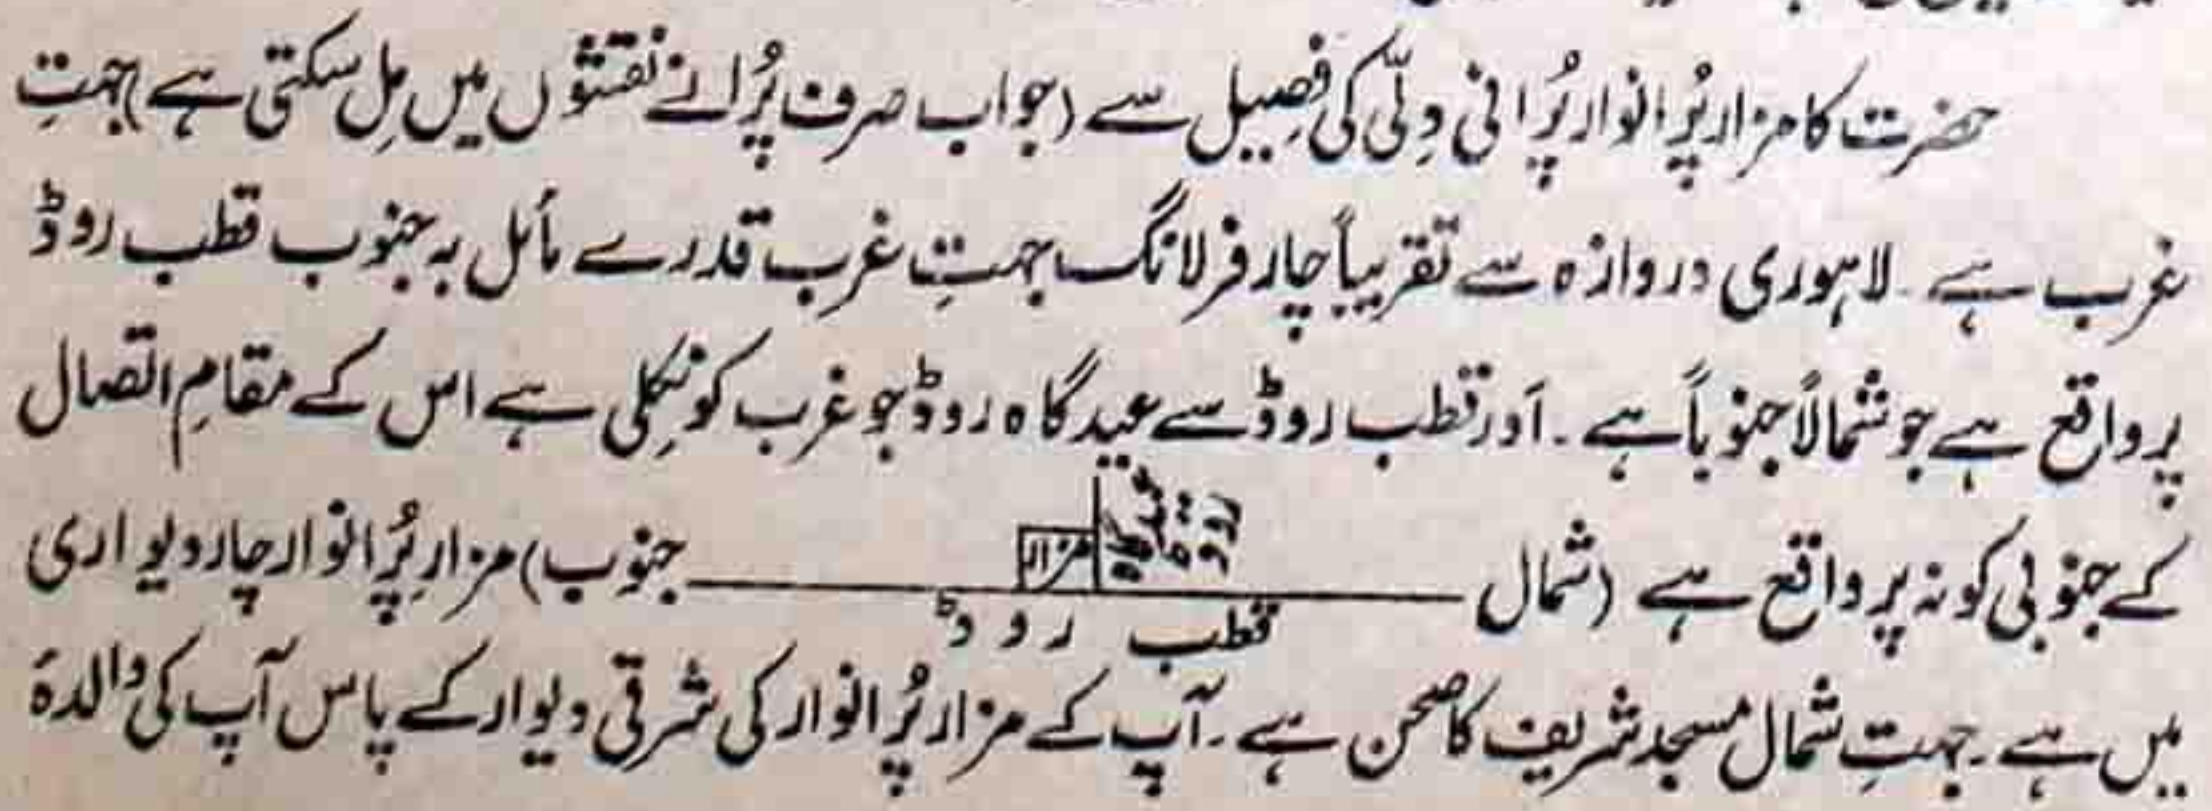 حضرت کا مزار پُر انوار پُرانی دِلّی کی فصِیل سے (جو اب صرف پُرانے نقشوں میں مِل سکتی ہے) جہتِ
غرب ہے۔ لاہوری دروازہ سے تقریباً چار فرلانگ جہتِ غرب قدرے مأمل بہ جنوب قطب روڈ
پر واقع ہے جو شمالاً جنوباً ہے۔ اَور قطب روڈ سے عید گاہ روڈ جو غرب کو نِکلی ہے اس کے مقامِ اتصال
کے جنوبی کونہ پر واقع ہے (شمال
مزار
قطب روڈ
جنوب) مزارِ پُر انوار چار دیواری
میں ہے۔ جہتِ شمال مسجد شریف کا صحن ہے۔ آپ کے مزار پُر انوار کی شرقی دیوار کے پاس آپ کی والدۂ